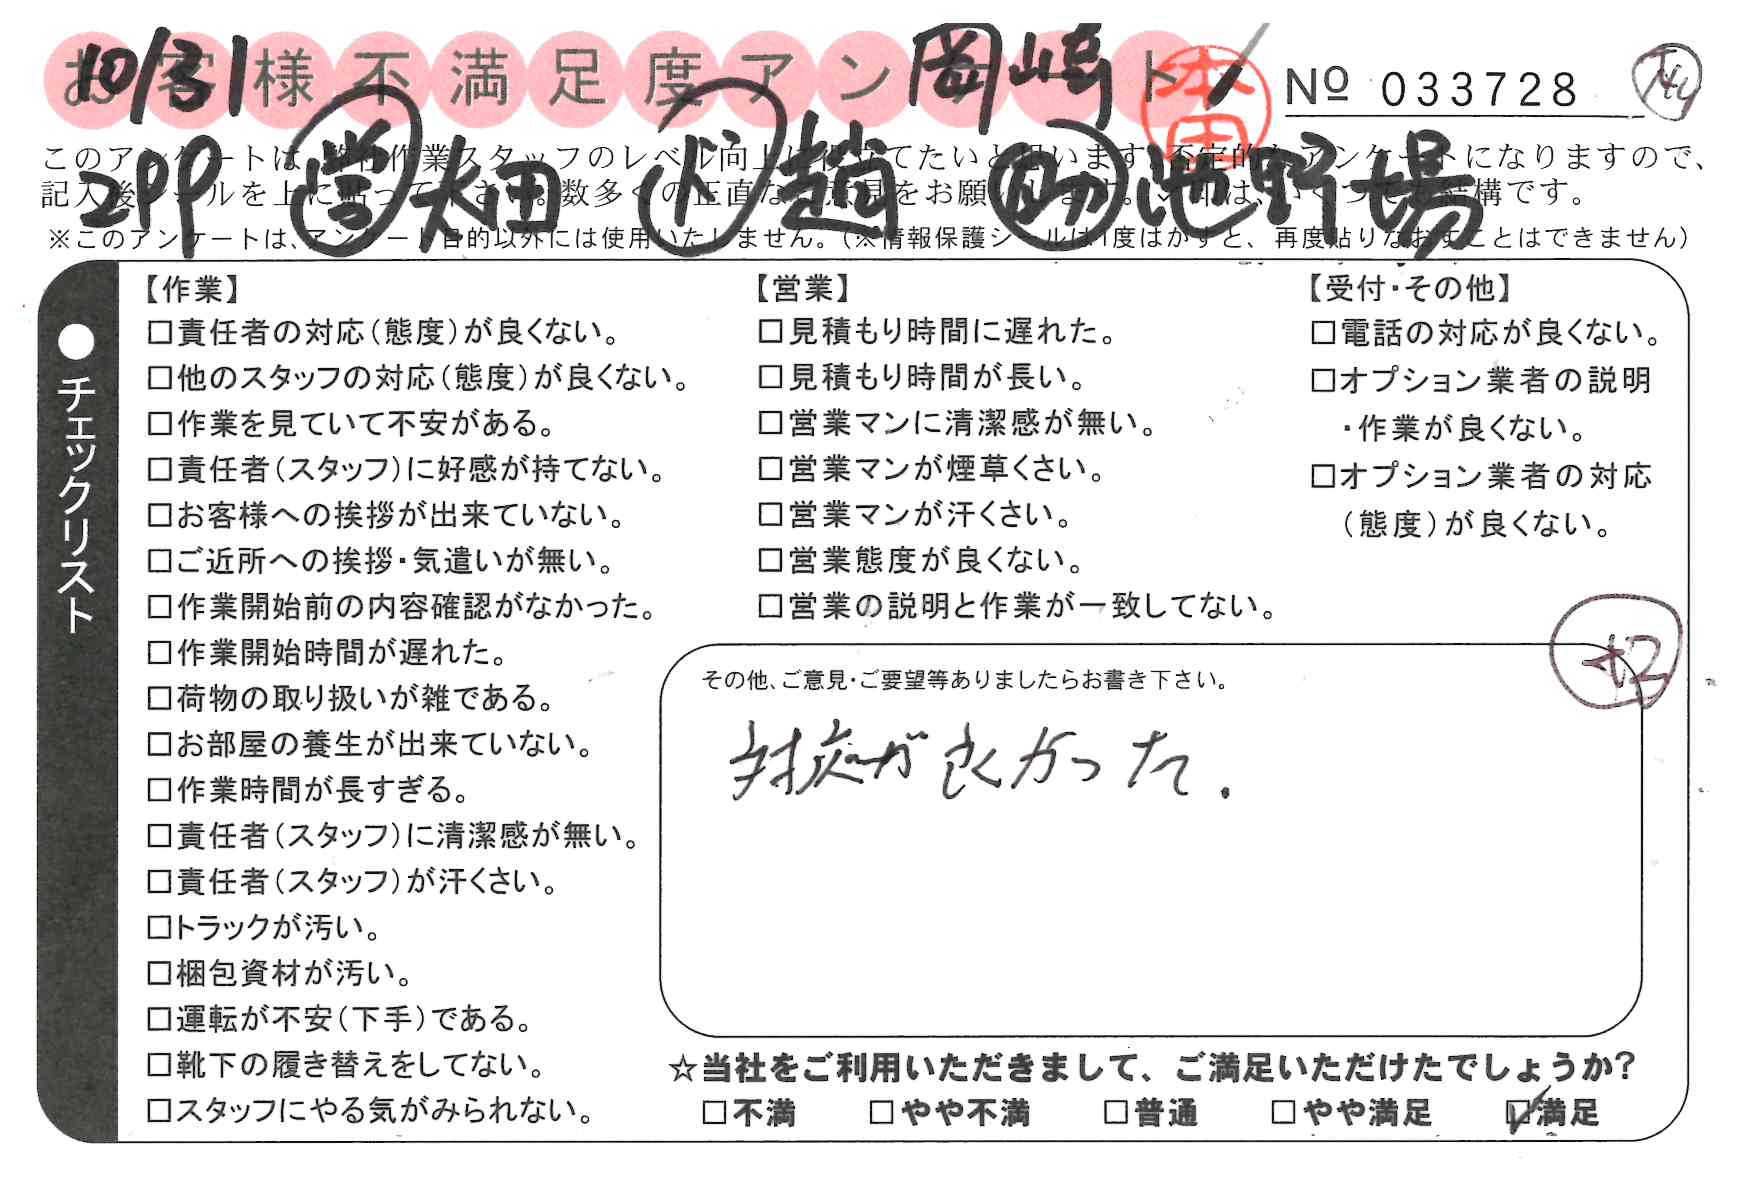 お客様不満足度アンケート
10/31 岡崎 本田 № 033728
このアンケートは、弊社作業スタッフのレベル向上に役立てたいと思います。否定的なアンケートになりますので、
記入後シールを上に貼って下さい。数多くの正直なご意見をお願いします。
2PP 営 太田 ド 越 助 池野 場
※このアンケートは、アンケート目的以外には使用いたしません。(※情報保護シールは1度はがすと、再度貼りなおすことはできません)
●チェックリスト
【作業】
□責任者の対応(態度)が良くない。
□他のスタッフの対応(態度)が良くない。
□作業を見ていて不安がある。
□責任者(スタッフ)に好感が持てない。
□お客様への挨拶が出来ていない。
□ご近所への挨拶・気遣いが無い。
□作業開始前の内容確認がなかった。
□作業開始時間が遅れた。
□荷物の取り扱いが雑である。
□お部屋の養生が出来ていない。
□作業時間が長すぎる。
□責任者(スタッフ)に清潔感が無い。
□責任者(スタッフ)が汗くさい。
□トラックが汚い。
□梱包資材が汚い。
□運転が不安(下手)である。
□靴下の履き替えをしてない。
□スタッフにやる気がみられない。
【営業】
□見積もり時間に遅れた。
□見積もり時間が長い。
□営業マンに清潔感が無い。
□営業マンが煙草くさい。
□営業マンが汗くさい。
□営業態度が良くない。
□営業の説明と作業が一致してない。
【受付・その他】
□電話の対応が良くない。
□オプション業者の説明
・作業が良くない。
□オプション業者の対応
(態度)が良くない。
その他、ご意見・ご要望等ありましたらお書き下さい。
対応が良くかった.
☆当社をご利用いただきまして、ご満足いただけたでしょうか?
□不満 □やや不満 □普通 □やや満足 ☑満足